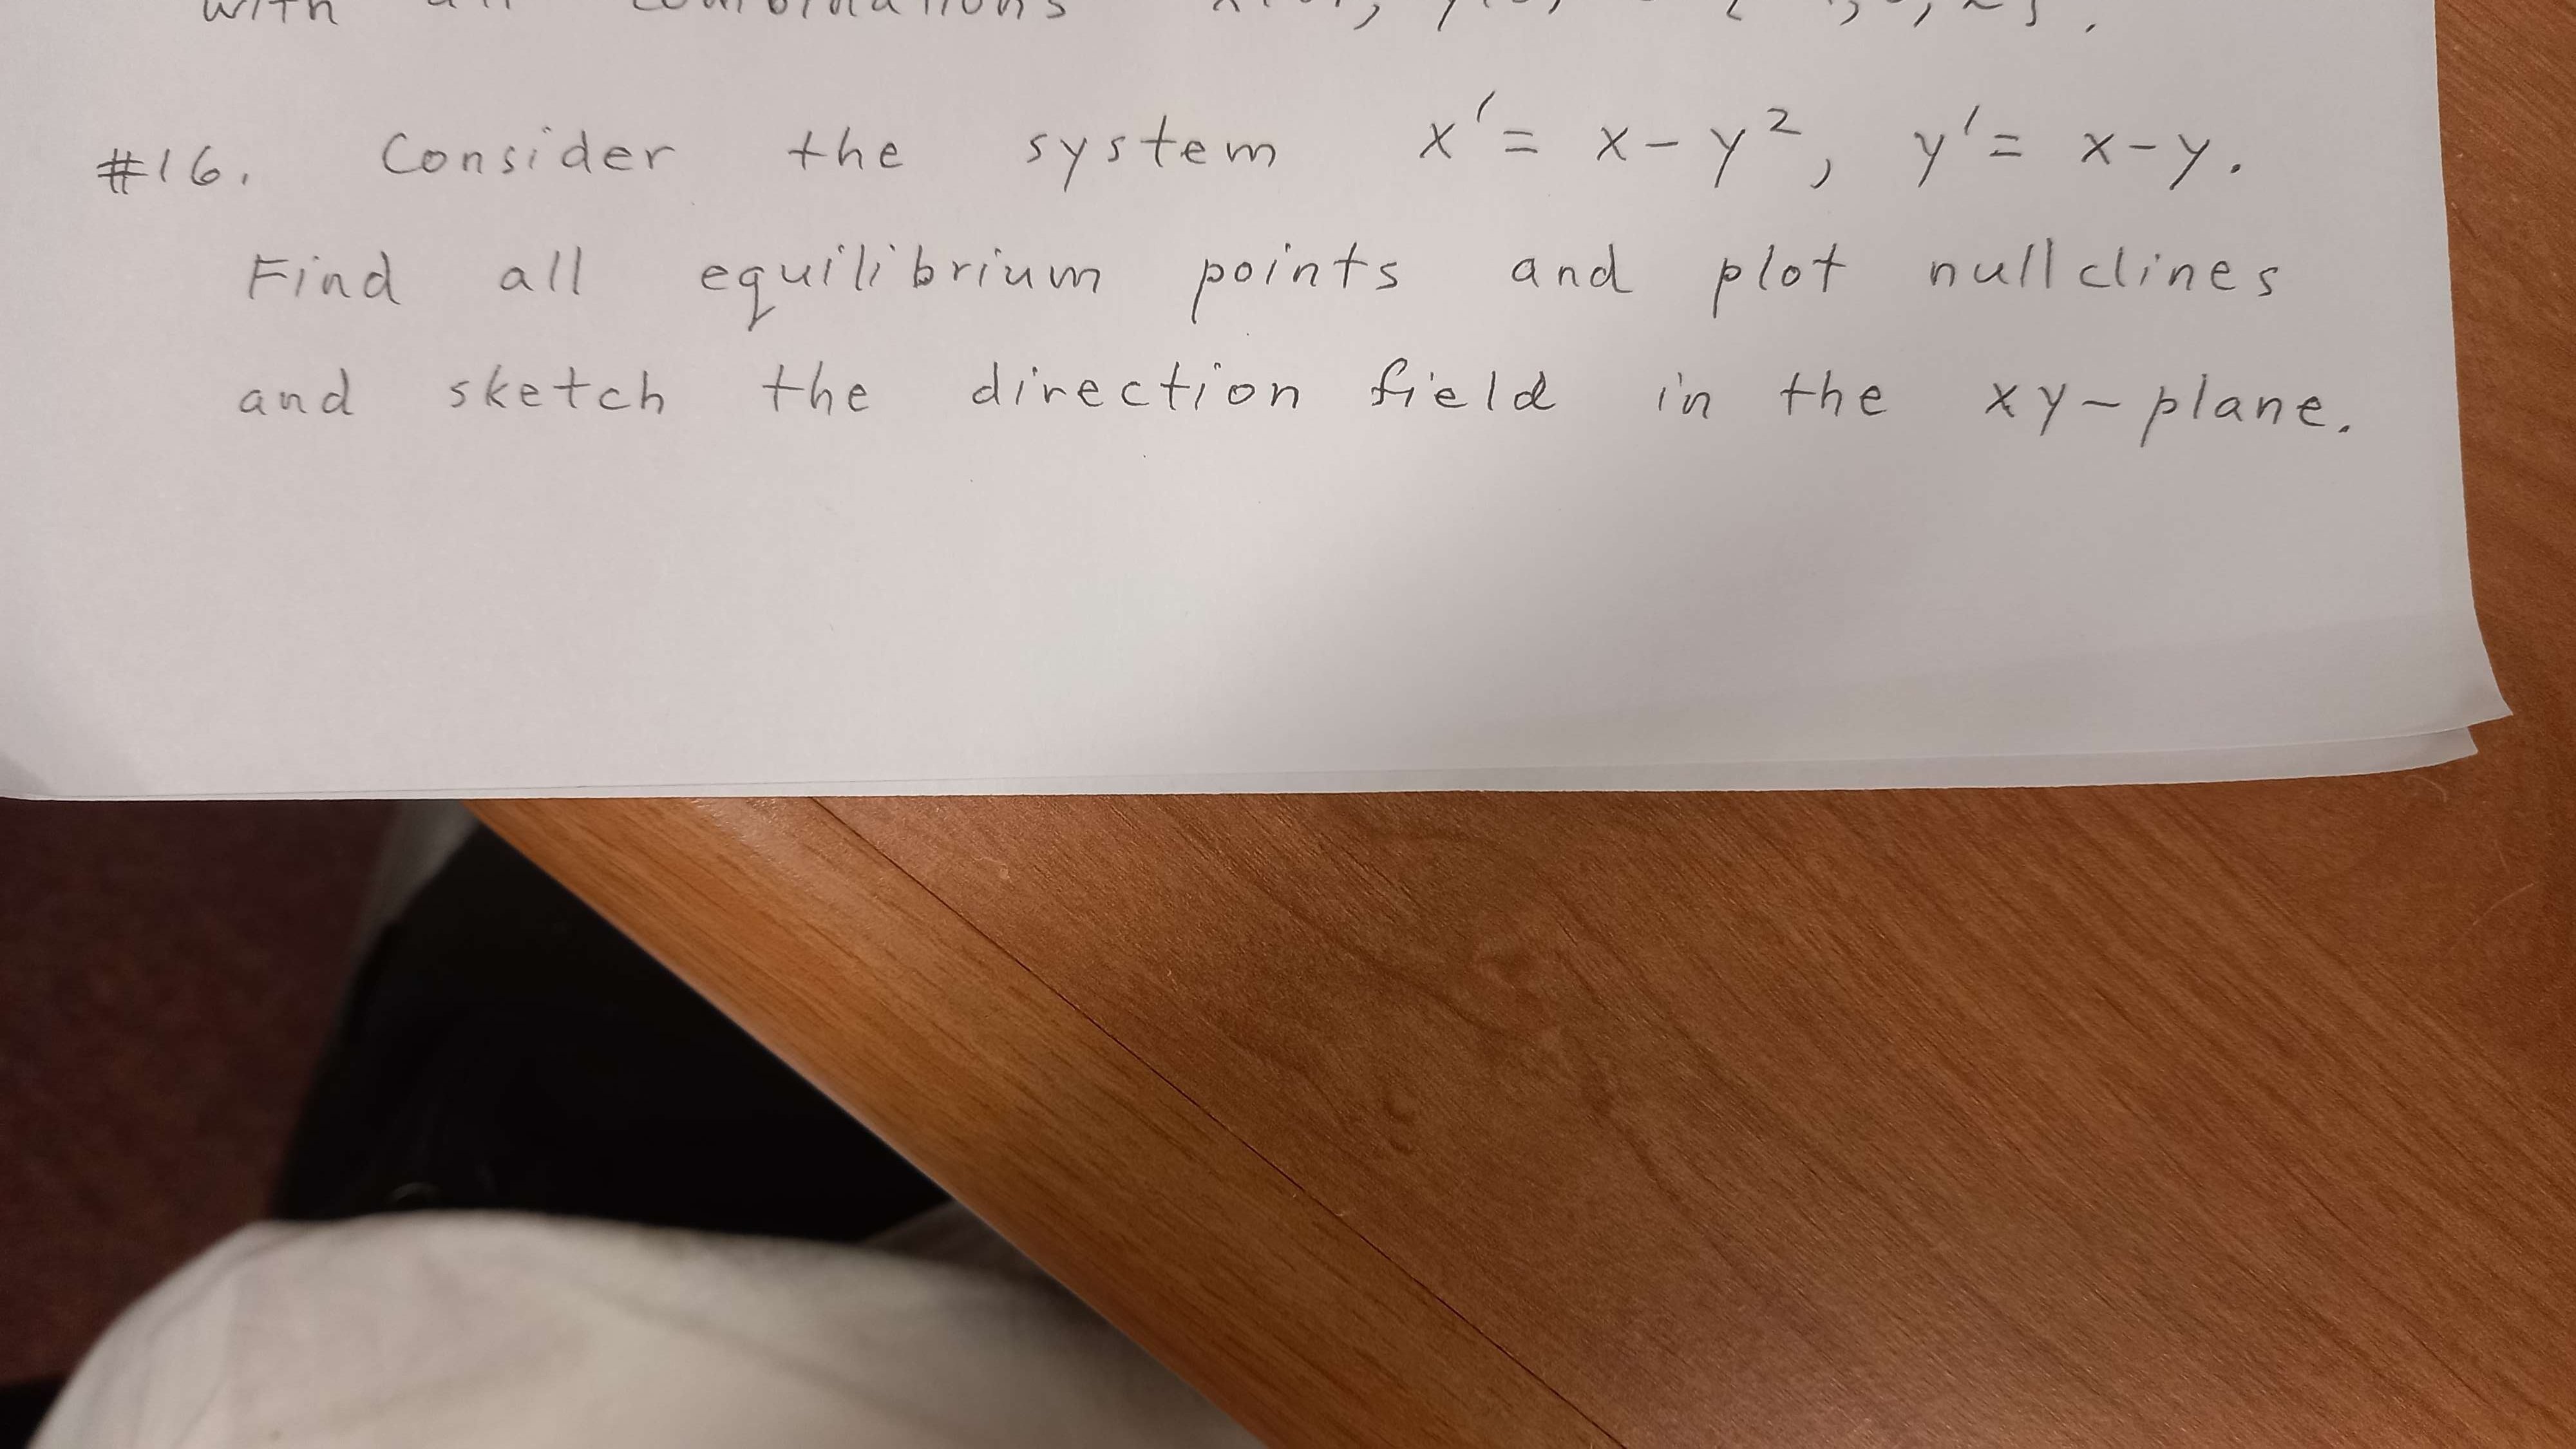 with all combinations
#16. Consider the system x' = x - y², y' = x - y.
Find all equilibrium points and plot nullclines
and sketch the direction field in the xy-plane.